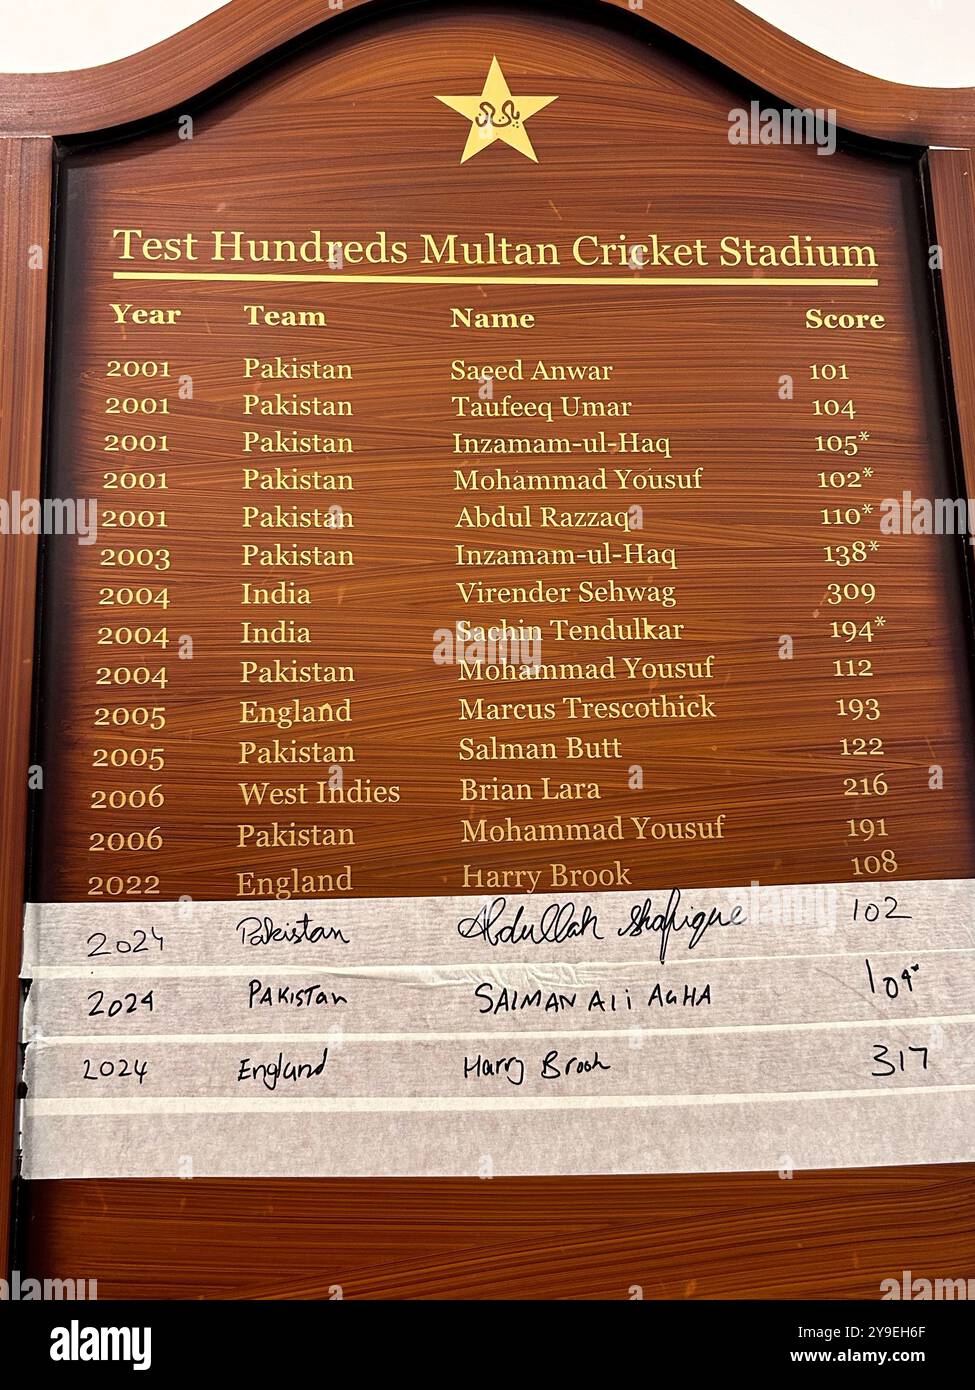 Test Hundreds Multan Cricket Stadium
Year Team Name Score
2001 Pakistan Saeed Anwar 101
2001 Pakistan Taufeeq Umar 104
2001 Pakistan Inzamam-ul-Haq 105*
2001 Pakistan Mohammad Yousuf 102*
2001 Pakistan Abdul Razzaq 110*
2003 Pakistan Inzamam-ul-Haq 138*
2004 India Virender Sehwag 309
2004 India Sachin Tendulkar 194*
2004 Pakistan Mohammad Yousuf 112
2005 England Marcus Trescothick 193
2005 Pakistan Salman Butt 122
2006 West Indies Brian Lara 216
2006 Pakistan Mohammad Yousuf 191
2022 England Harry Brook 108
2024 Pakistan Abdullah Shafique 102
2024 PAKISTan SALMAN Ali AGHA 104*
2024 England Harry Brook 317
alamy
Image ID: 2Y9EH6F
www.alamy.com